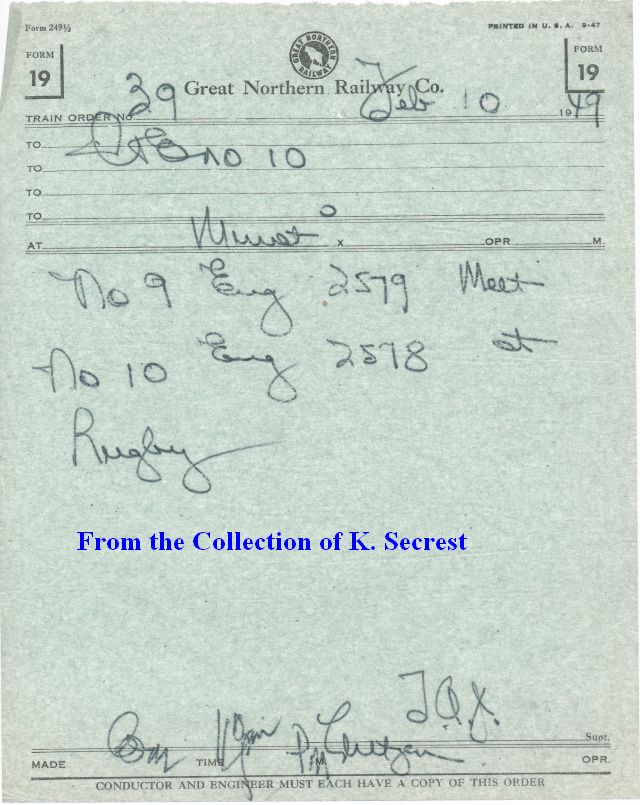 Form 249½ PRINTED IN U. S. A. 9-47
FORM 19 GREAT NORTHERN RAILWAY FORM 19
Great Northern Railway Co.
TRAIN ORDER No. 39 Feb 10 1949
TO C&E No 10
TO
TO
TO
AT Minot X OPR. M.
No 9 Eng 2579 Meet
No 10 Eng 2578 at
Rugby
From the Collection of K. Secrest
Supt.
MADE Com TIME M OPR.
CONDUCTOR AND ENGINEER MUST EACH HAVE A COPY OF THIS ORDER